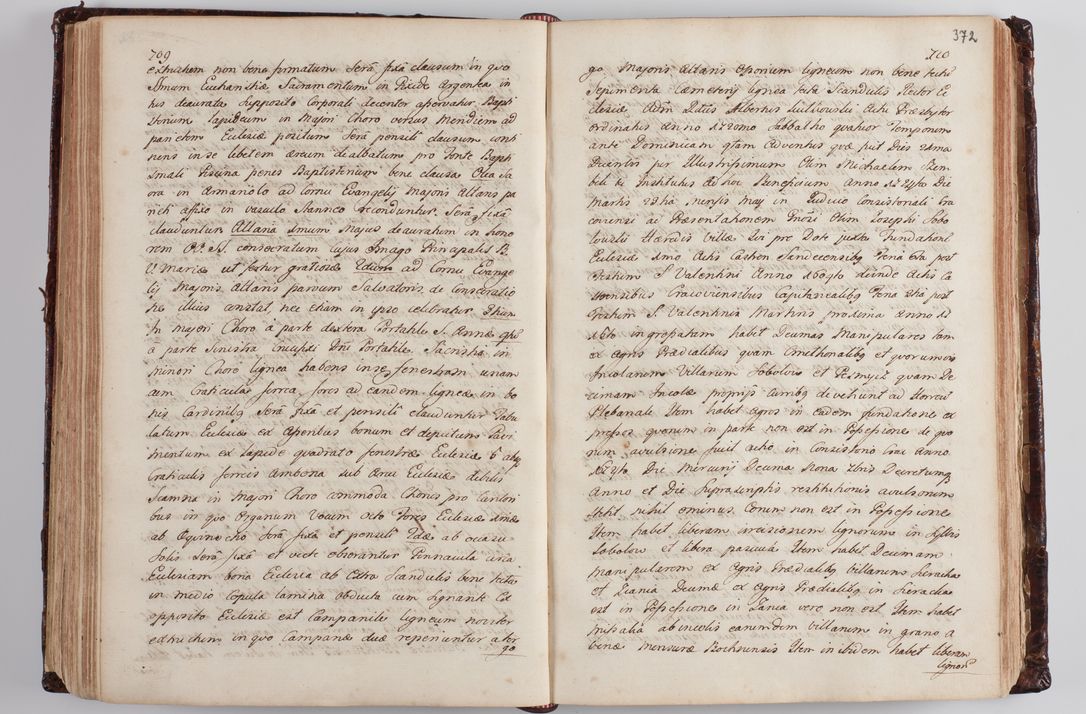 709
extructum non bene firmatum Serâ fixâ clausum in quo
SSmum Eucharistiæ Sacramentum in Pixide Argentea in
tus deaurata supposito Corporali decenter aservatur Bapti
sterium lapideum in Majori Choro versus Meridiem ad
parietem Ecclesiæ positum Serâ pensili clausum conti
nens in se lebetem æreum dealbatum pro Fonte Bapti
smali Piscina penes Baptisterium bene clausa Olea Sa
cra in Armariolo ad Cornu Evangelij Majoris Altaris pa
rieti affixo in vasculo Stanneo reconduntur Serâ fixâ
clauduntur Altaria Imum Majus deauratum in hono
rem OO. SS. consecratum cujus Imago Principalis B.
V. Mariæ ut fertur gratiosa 2dum ad Cornu Evange
lij Majoris Altaris parvum Salvatoris, de Consecratio
ne illius constat, nec etiam in ipso celebratur 3tium
In Majori Choro â parte dextera Portatile S. Annæ 4tum
â parte Sinistra Crucifixi Dni Portatile, Sacristia in
minori Choro lignea habens in se fenestram unam
cum Craticula ferrea fores ad eandem ligneæ in bo
nis Cardinibq Serâ fixâ et pensili clauduntur Tabu
latum Ecclesiæ ex Aseribus bonum et depictum Pavi
mentum ex lapide quadrato fenestræ Ecclesiæ 6 absq
Craticulis ferreis Ambona sub Arcu Ecclesiæ debilis
Scamna in Majori Choro commoda Chorus pro Cantori
bus in quo Organum Vocum Octo Fores Ecclesiæ 1mæ
ab Aquino cho Serâ fixâ et pensili 2dæ ab occasu
Solis Serâ fixâ et vecte obserantur Pinnacula circa
Ecclesiam bona Ecclesia ab Extra Scandulis bene tecta
in medio Copula lamina obducta cum Signante Ex
opposito Ecclesiæ est Campanile ligneum noviter
extructum in quo Campanæ duæ reperientur a ter
go

372
710
go Majoris Altaris Osorium ligneum non bene tectum
Sepimenta Cæmeterij lignea tecta Scandulis Rector E
clesiæ Adm Rdus Albertus Actu Præsbyter
Ordinatus Anno 1720mo Sabbatho quatuor Temporum
ante Dominicam 4tam Adventus quæ fuit Dies 21ma
Decembris per Illustrissimum Olim Michaelem Szem
bek ki Institutus ad hoc Beneficium Anno 1724to Die
Martis 23tia mensis May in Judicio Consistoriali Cra
coviensi ac Præsentationem Gnosi Olim Josephi Sobo
lewski Hæredis Villæ Qui pro Dote juxta Fundationem
Ecclesiæ 1mo Actis Castren Sandecensibq Feria 6ta post
Festum S. Valentini Anno 1604to deinde Actis Ca
strensibus Cracoviensibus Capitanealibq Feria 2tia post
Festum S. Valentinia Martiris proxima Anno 1
1610 ingrosatam habet Decimas Manipulares tam
ex Agris Prædialibus quam Cmethonalibq et quorumvis
Incolarum Villarum Sobolow et quam De
cimam Incolæ proprijs curribq devehunt ad Horreum
Plebanale Item habet Agros in eadem fundatione ex
pressos quorum in parte non est in Possessione de quo
rum avulsione fuit actio in Consistorio Crac Anno
1724to Die Mercurij Decima Nona 7bris Decretumq
Anno et Die Suprascriptis restitutionis avulsorum
stetit nihil eminus Corum non est in Possessione
Item habet liberam incisionem lignorum in Sylvis
Sobolow et libera pascua Item habet Decimam
Manipularem ex Agris Prædialibq Villarum Sieracha
et Zania Decimæ ex Agris Prædialibq in Sieracha
est in Possessione in Zania vero non est Item habet
missalia ab incolis earumdem Villarum in grano â
bene mensuræ Bochnensis Item in ibidem habet liberam
lignor